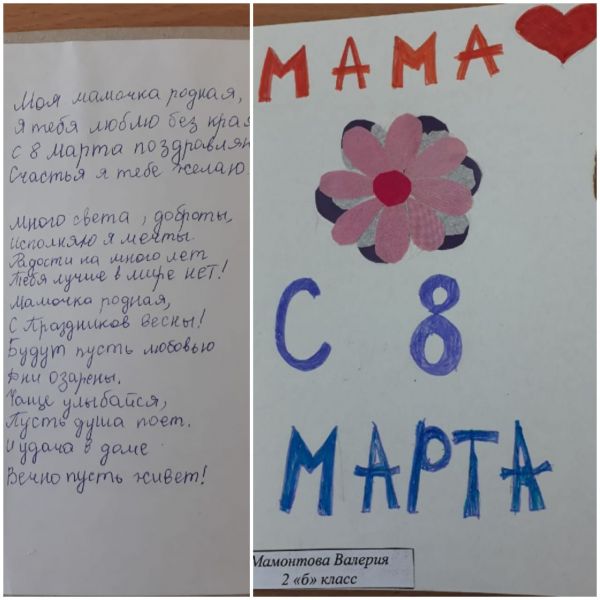 Моя мамочка родная,
Я тебя люблю без края
С 8 Марта поздравляю
Счастья я тебе желаю.
Много света, доброты,
Исполняю я мечты.
Радости на много лет
Тебя лучше в мире НЕТ!
Мамочка родная,
С Праздников весны!
Будут пусть любовью
Дни озарены.
Чаще улыбайся,
Пусть душа поет.
И удача в доме
Вечно пусть живет!
МАМА
С 8
МАРТА
Мамонтова Валерия
2 «б» класс